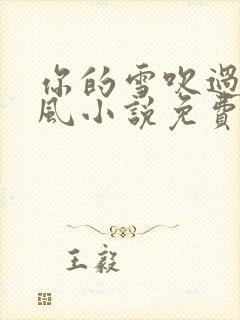 你的雪吹過
風小說免費
王毅